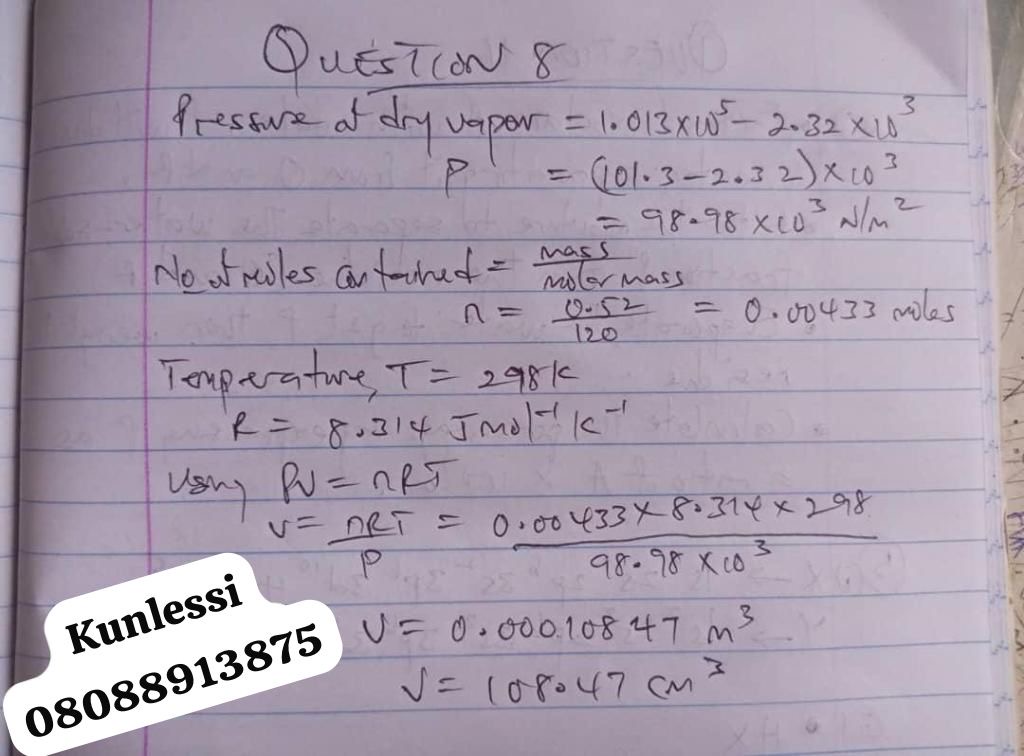 QUESTION 8
Pressure of dry vapor = 1.013 x 10⁵ - 2.32 x 10³
P = (101.3 - 2.32) x 10³
= 98.98 x 10³ N/m²
No of moles contained = mass / molar mass
n = 0.52 / 120 = 0.00433 moles
Temperature, T = 298K
R = 8.314 Jmol⁻¹ K⁻¹
Using PV = nRT
V = nRT / P = 0.00433 x 8.314 x 298 / 98.98 x 10³
V = 0.00010847 m³
V = 108.47 cm³
Kunlessi
08088913875